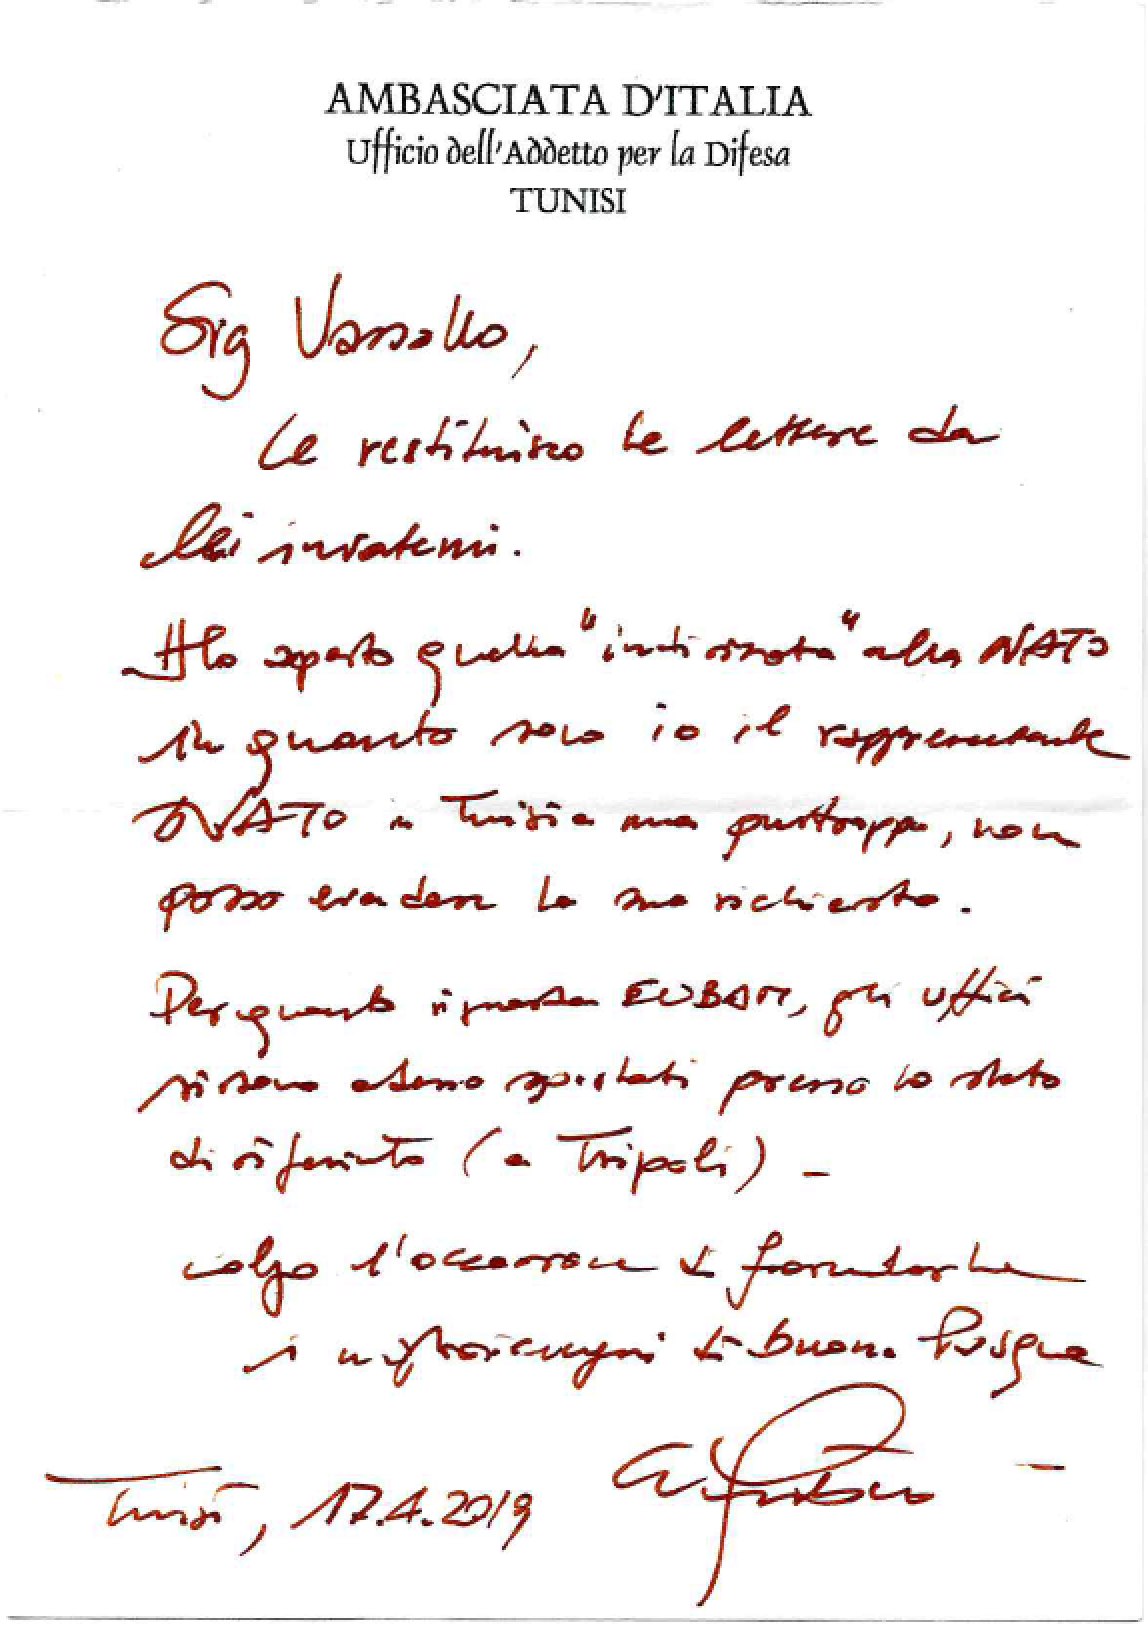 AMBASCIATA D'ITALIA
Ufficio dell'Addetto per la Difesa
TUNISI
Sig Vassallo,
Le restituisco le lettere da
Lei inviatemi.
Ho aperto quella "indirizzata" alla NATO
in quanto sono io il rappresentante
NATO in Tunisia ma purtroppo, non
posso evadere la sua richiesta.
Per quanto riguarda EUBAM, gli uffici
si sono adesso spostati presso lo stato
di riferimento (a Tripoli) -
colgo l'occasione di formularLe
i migliori auguri di buona Pasqua
Tunisi, 17.4.2019